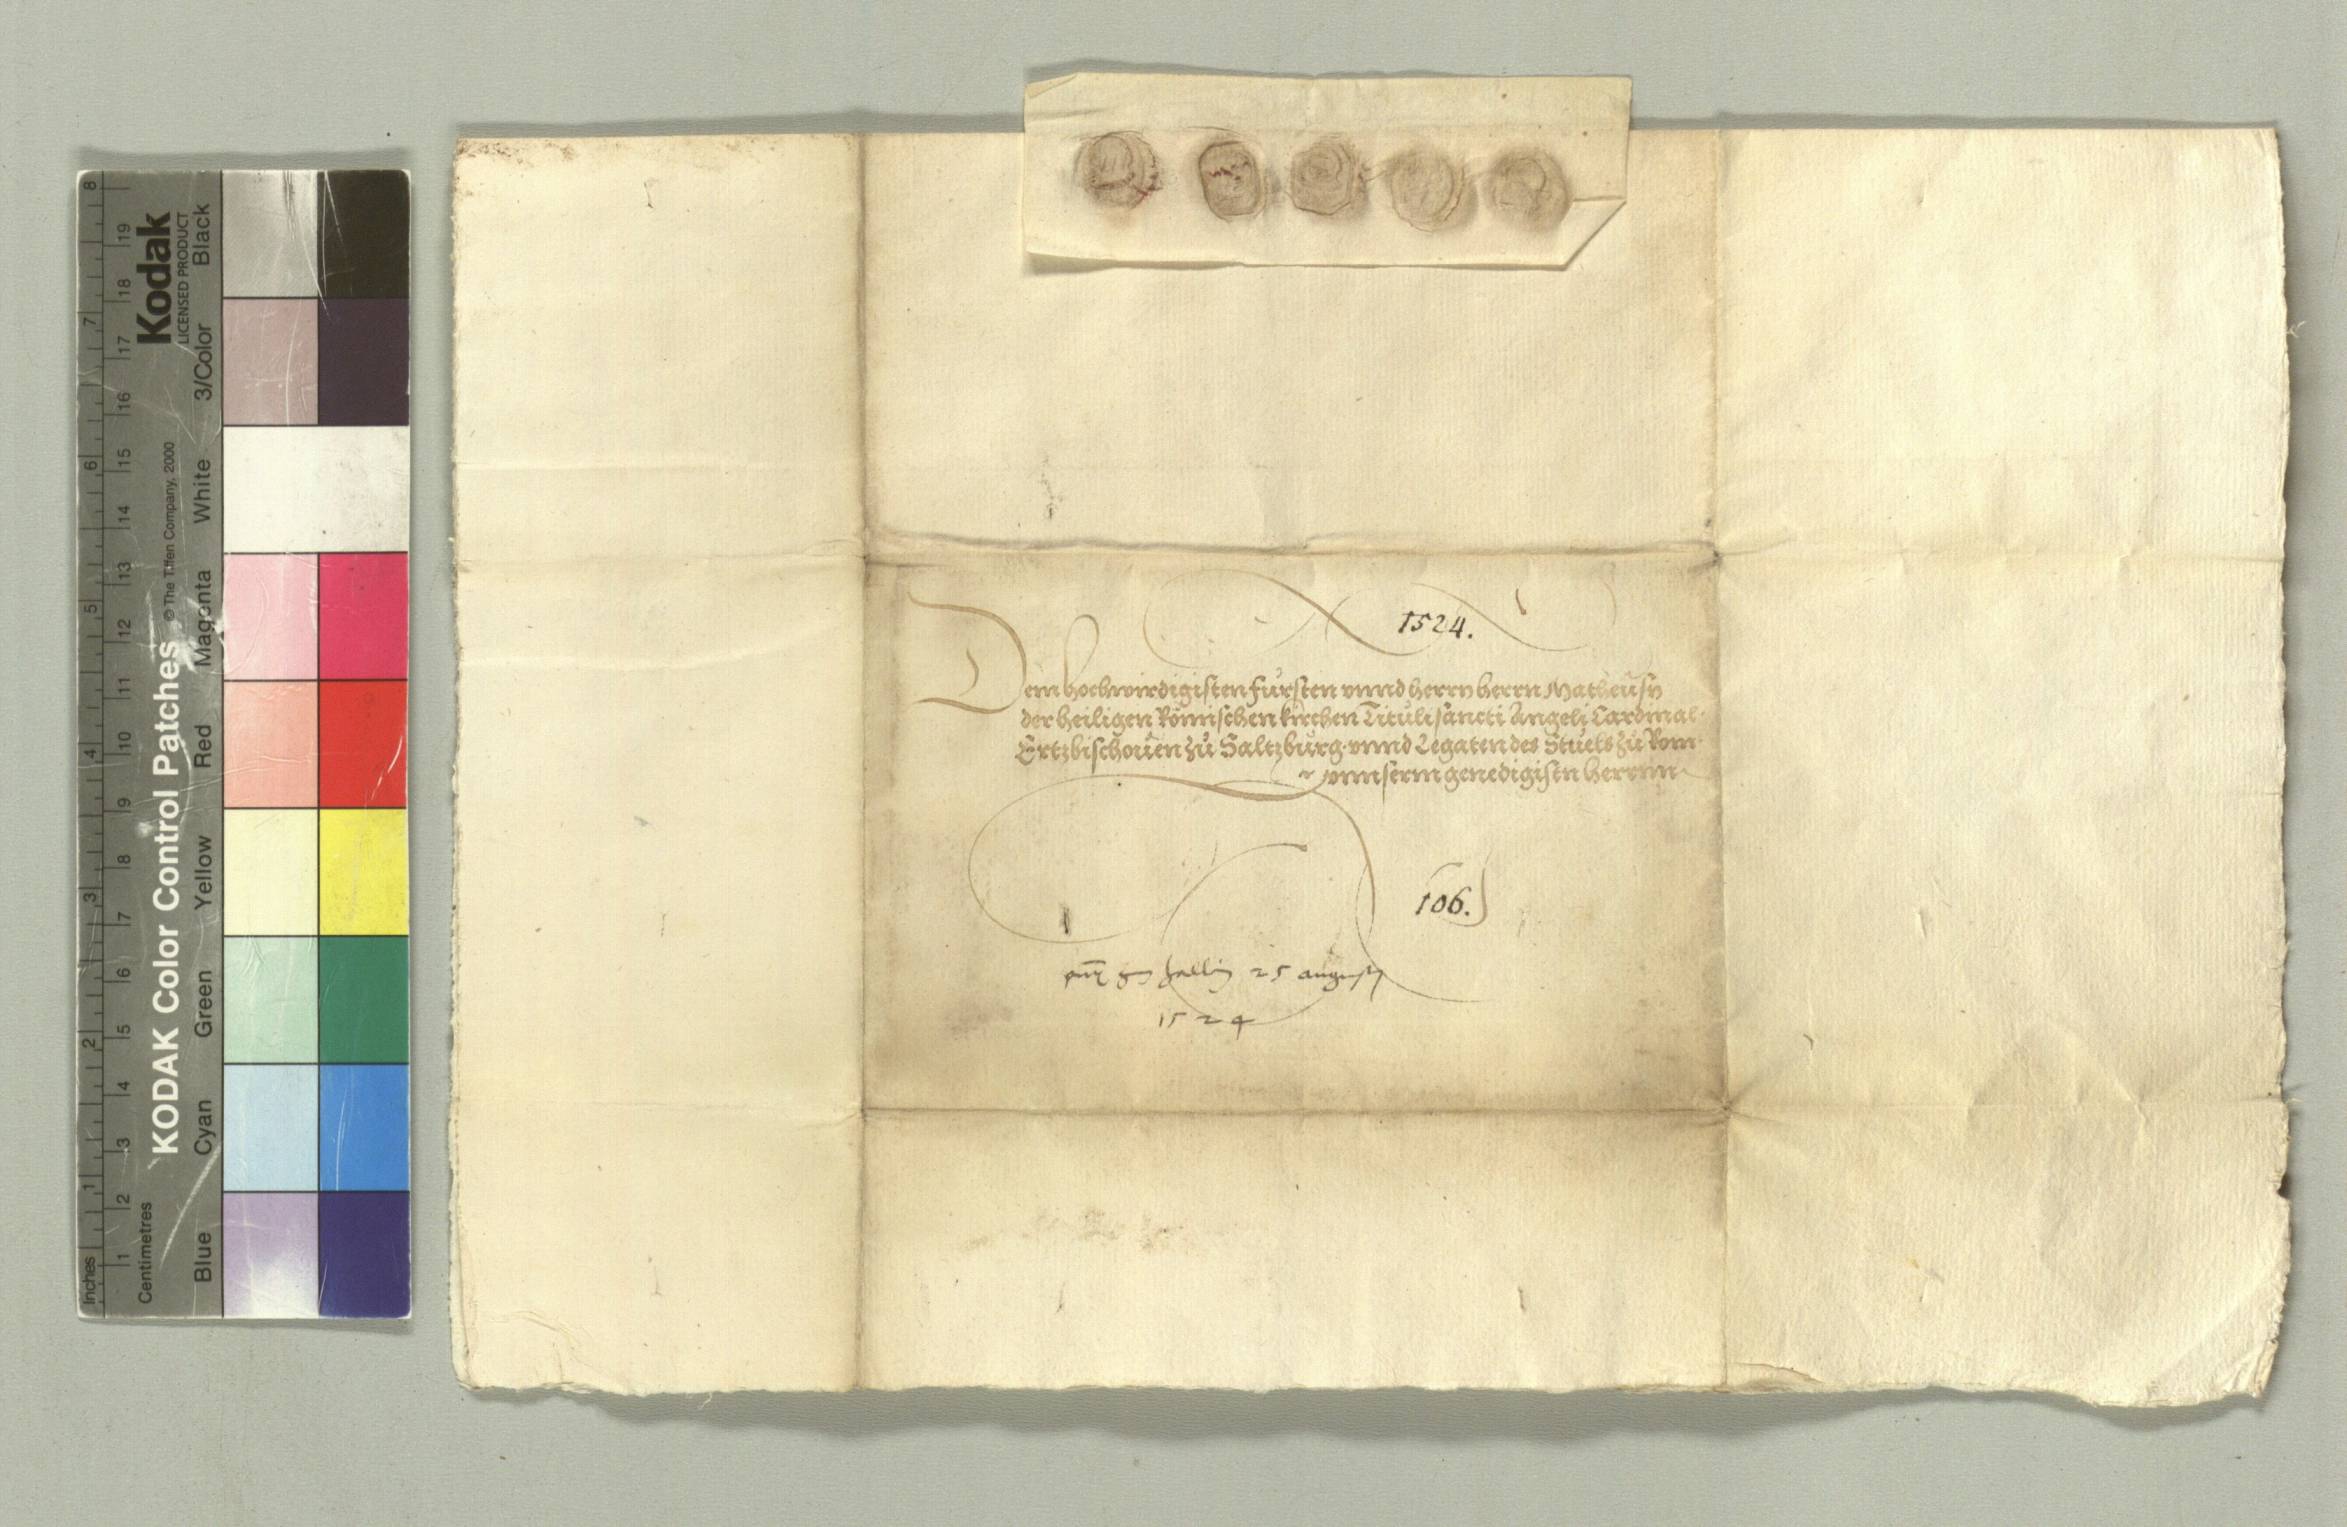 KODAK Color Control Patches
© The Tiffen Company, 2000
Kodak
LICENSED PRODUCT
Inches 1 2 3 4 5 6 7 8
Centimetres 1 2 3 4 5 6 7 8 9 10 11 12 13 14 15 16 17 18 19
Blue Cyan Green Yellow Red Magenta White 3/Color Black
1524.
Dem hochwirdigisten fürsten vnnd herrn herrn Matheusn
der heiligen Römischen kirchen Tituli sancti Angeli Cardinal
Ertzbischouen zů Saltzburg vnnd Legaten des Stuels zů Rom
vnnserm genedigistn herrnn
106.
hallin 25 augusti
1524